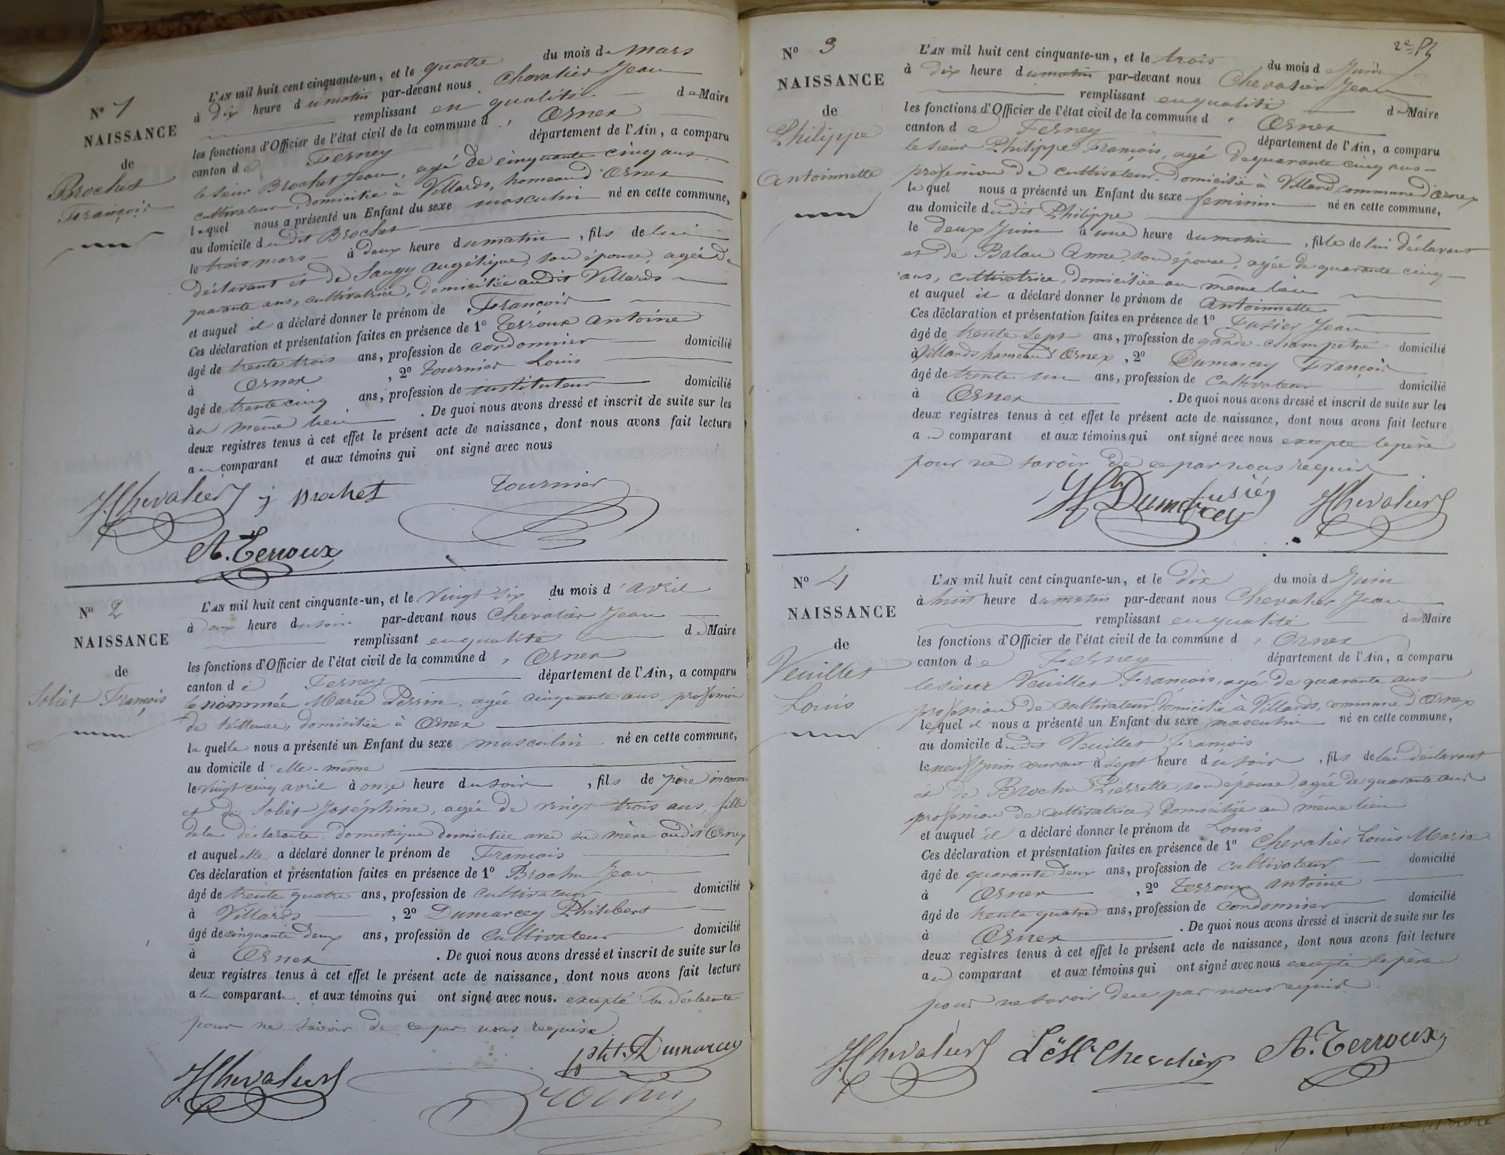 N° 1
NAISSANCE
de
Brochet
François
L'AN mil huit cent cinquante-un, et le quatre du mois de mars
à dix heure du matin par-devant nous Chevalier Jean
remplissant en qualité de Maire
les fonctions d'Officier de l'état civil de la commune d' Ornex
canton de Ferney département de l'Ain, a comparu
le sieur Brochet Jean, agé de cinquante cinq ans
cultivateur domicilié à Villards, hameau d'Ornex
lequel nous a présenté un Enfant du sexe masculin né en cette commune,
au domicile du dit Brochet
le trois mars à deux heure du matin, fils de lui
déclarant et de Saugy Angélique, son épouse, agée de
quarante ans, cultivatrice, domiciliée au dit Villards
et auquel il a déclaré donner le prénom de François
Ces déclaration et présentation faites en présence de 1° Terroux Antoine
âgé de trente trois ans, profession de cordonnier domicilié
à Ornex, 2° Tournier Louis
âgé de trente cinq ans, profession de instituteur domicilié
à u même lieu. De quoi nous avons dressé et inscrit de suite sur les
deux registres tenus à cet effet le présent acte de naissance, dont nous avons fait lecture
au comparant et aux témoins qui ont signé avec nous
J. Chevalier J Brochet Tournier
A. Terroux
N° 2
NAISSANCE
de
Soliet François
L'AN mil huit cent cinquante-un, et le vingt six du mois d'avril
à deux heure du soir par-devant nous Chevalier Jean
remplissant en qualité de Maire
les fonctions d'Officier de l'état civil de la commune d' Ornex
canton de Ferney département de l'Ain, a comparu
le nommée Marie Perrin, agée cinquante ans, profession
de tailleuse, domiciliée à Ornex
la quelle nous a présenté un Enfant du sexe masculin né en cette commune,
au domicile d'elle-même
le vingt cinq avril à onze heure du soir, fils de père inconnu
et de Soliet Joséphine, agée de vingt trois ans, fille
de la déclarante, domestique domiciliée avec sa mère au dit Ornex
et auquel elle a déclaré donner le prénom de François
Ces déclaration et présentation faites en présence de 1° Brochu Jean
âgé de trente quatre ans, profession de cultivateur domicilié
à Villards, 2° Dumarcey Philibert
âgé de cinquante deux ans, profession de cultivateur domicilié
à Ornex. De quoi nous avons dressé et inscrit de suite sur les
deux registres tenus à cet effet le présent acte de naissance, dont nous avons fait lecture
a la comparante et aux témoins qui ont signé avec nous. excepté la déclarante
pour ne savoir de ce par nous requise
J. Chevalier Phi. Dumarcey
Brochu
2e
N° 3
NAISSANCE
de
Philippe
Antoinette
L'AN mil huit cent cinquante-un, et le trois du mois de Juin
à dix heure du matin par-devant nous Chevalier Jean
remplissant en qualité de Maire
les fonctions d'Officier de l'état civil de la commune d' Ornex
canton de Ferney département de l'Ain, a comparu
le sieur Philippe François, agé de quarante cinq ans
profession de cultivateur domicilié à Villard commune d'Ornex
lequel nous a présenté un Enfant du sexe feminin né en cette commune,
au domicile du dit Philippe
le deux Juin à une heure du matin, fille de lui déclarant
et de Balau Anne son épouse, agée de quarante cinq
ans, cultivatrice, domiciliée au même lieu
et auquel il a déclaré donner le prénom de Antoinette
Ces déclaration et présentation faites en présence de 1° Fusier Jean
âgé de trente sept ans, profession de garde-champetre domicilié
à Villards hameau d'Ornex, 2° Dumarcey François
âgé de trente un ans, profession de cultivateur domicilié
à Ornex. De quoi nous avons dressé et inscrit de suite sur les
deux registres tenus à cet effet le présent acte de naissance, dont nous avons fait lecture
au comparant et aux témoins qui ont signé avec nous excepté le père
pour ne savoir de ce par nous requis
Dumarcey fusiéy J. Chevalier
N° 4
NAISSANCE
de
Veuillet
Louis
L'AN mil huit cent cinquante-un, et le dix du mois d Juin
à huit heure du matin par-devant nous Chevalier Jean
remplissant en qualité de Maire
les fonctions d'Officier de l'état civil de la commune d' Ornex
canton de Ferney département de l'Ain, a comparu
le sieur Veuillet François, agé de quarante ans
profession de cultivateur domicilié à Villards, commune d'Ornex
lequel il nous a présenté un Enfant du sexe masculin né en cette commune,
au domicile du dit Veuillet François
le neuf Juin courant à sept heure du soir, fils de lui déclarant
et de Brochu Pierrette, son épouse agée de quarante ans
profession de cultivatrice, domiciliée au même lieu
et auquel il a déclaré donner le prénom de Louis
Ces déclaration et présentation faites en présence de 1° Chevalier Louis Marie
âgé de quarante deux ans, profession de cultivateur domicilié
à Ornex, 2° Terroux Antoine
âgé de trente quatre ans, profession de cordonnier domicilié
à Ornex. De quoi nous avons dressé et inscrit de suite sur les
deux registres tenus à cet effet le présent acte de naissance, dont nous avons fait lecture
au comparant et aux témoins qui ont signé avec nous excepté le père
pour ne savoir de ce par nous requis
J. Chevalier Ls Mie Chevalier A. Terroux